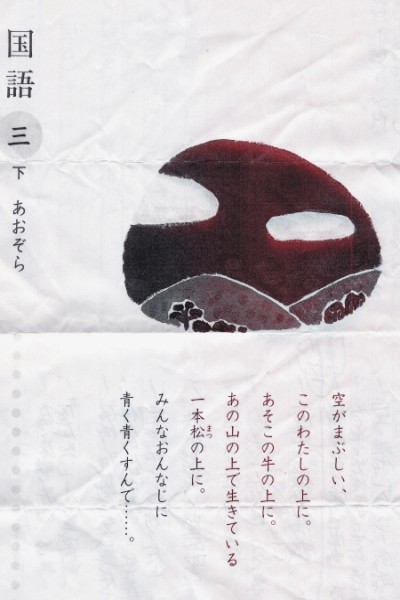 国語
三
下 あおぞら
空がまぶしい、
このわたしの上に。
あそこの牛の上に。
あの山の上で生きている
一本松の上に。
まつ
みんなおんなじに
青く青くすんで……。